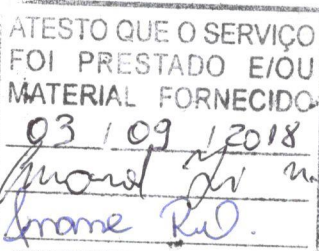 ATESTO QUE O SERVIÇO
FOI PRESTADO E/OU
MATERIAL FORNECIDO
03 / 09 / 2018